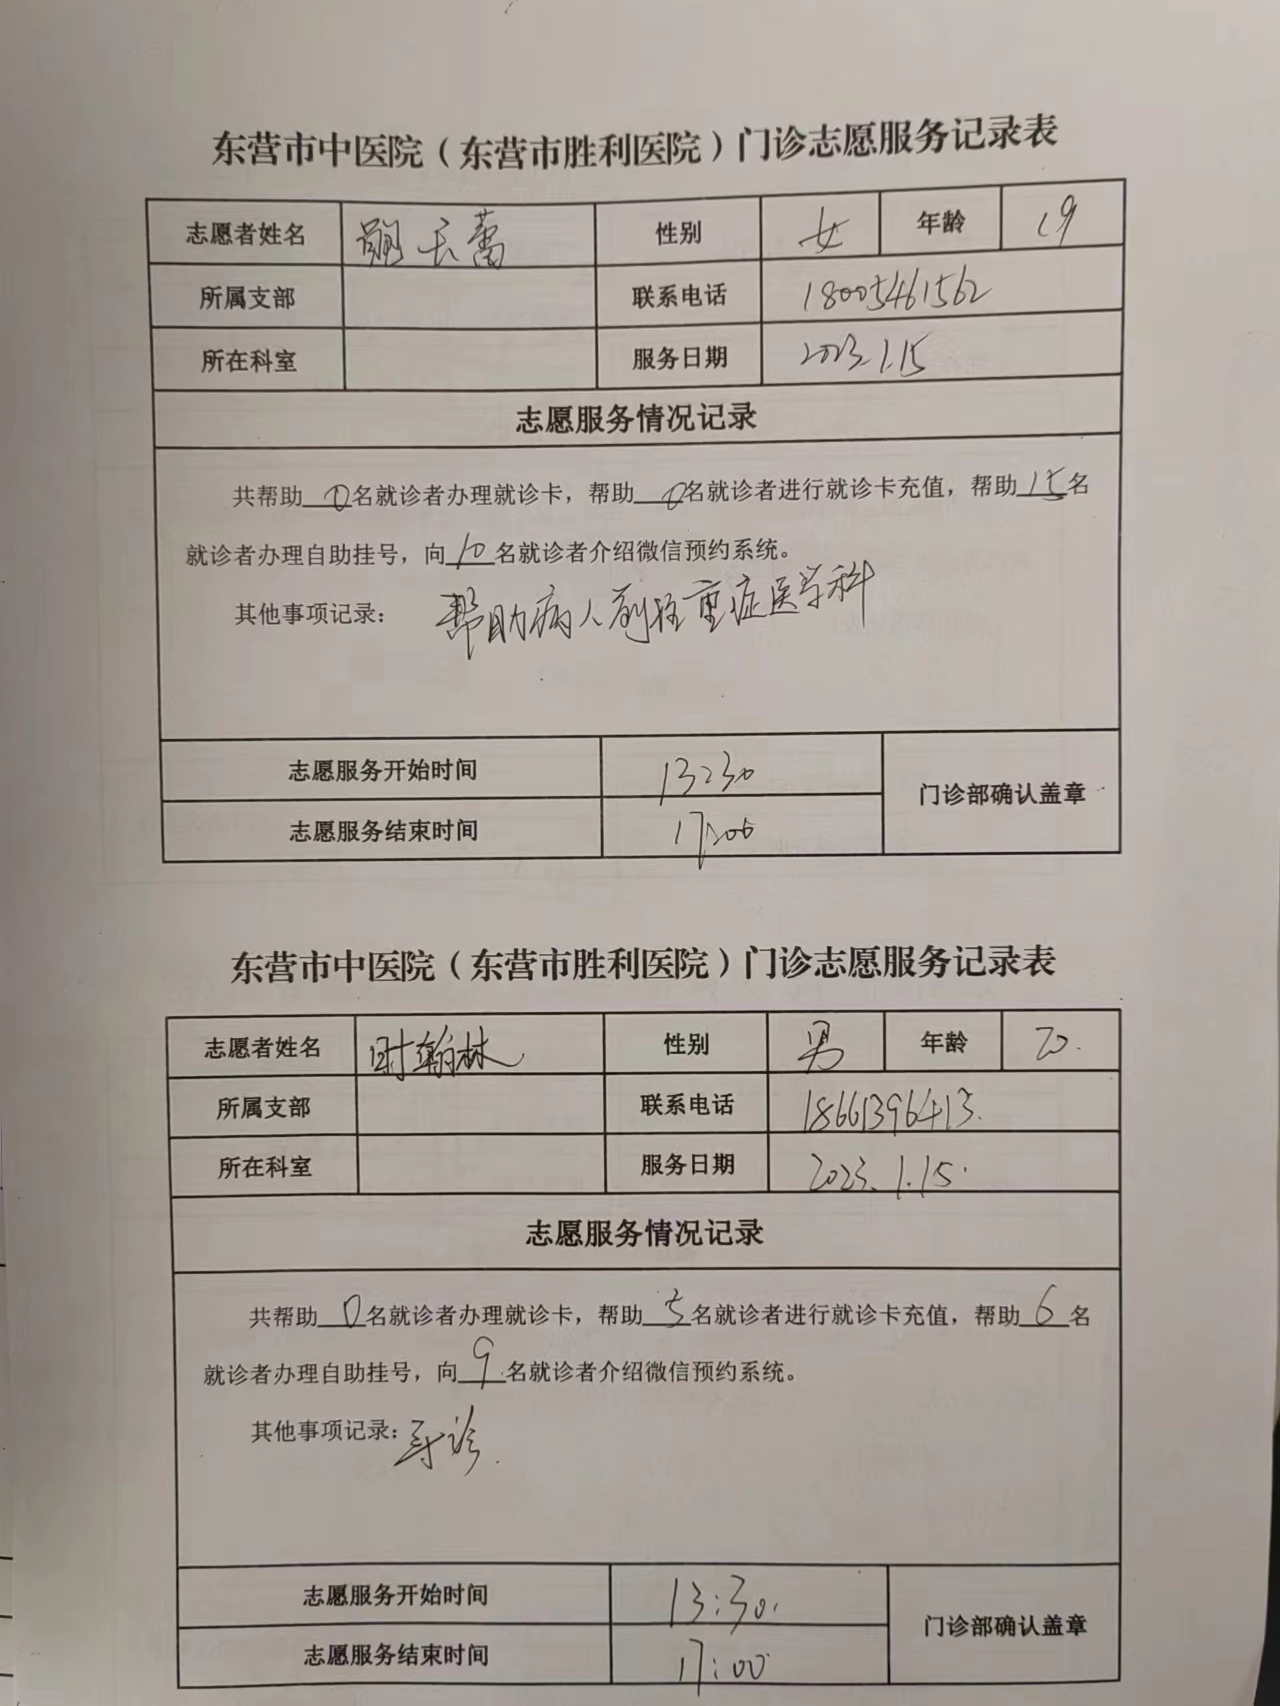 东营市中医院（东营市胜利医院）门诊志愿服务记录表
志愿者姓名 性别 女 年龄 19
所属支部 联系电话 18005461562
所在科室 服务日期 2023.1.15
志愿服务情况记录
共帮助0名就诊者办理就诊卡，帮助0名就诊者进行就诊卡充值，帮助15名
就诊者办理自助挂号，向10名就诊者介绍微信预约系统。
其他事项记录： 帮助病人前往重症医学科
志愿服务开始时间 13:30
门诊部确认盖章
志愿服务结束时间 17:00
东营市中医院（东营市胜利医院）门诊志愿服务记录表
志愿者姓名 时翰林 性别 男 年龄 20.
所属支部 联系电话 18661396413.
所在科室 服务日期 2023.1.15.
志愿服务情况记录
共帮助0名就诊者办理就诊卡，帮助5名就诊者进行就诊卡充值，帮助6名
就诊者办理自助挂号，向9名就诊者介绍微信预约系统。
其他事项记录：导诊.
志愿服务开始时间 13:30.
门诊部确认盖章
志愿服务结束时间 17:00